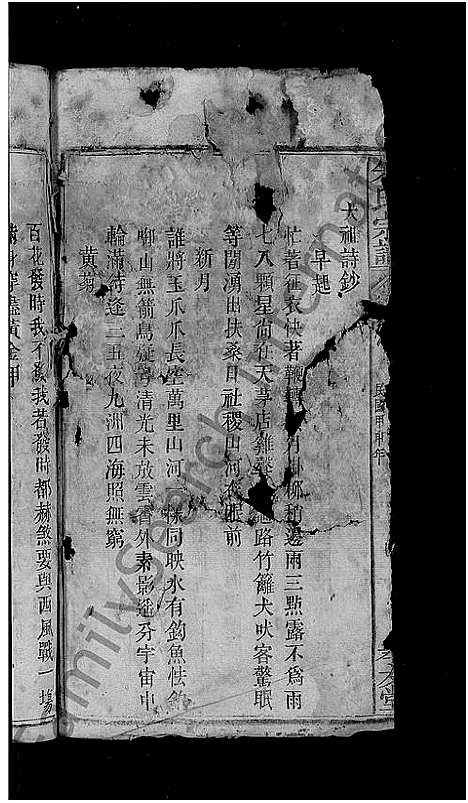 朱氏宗譜
民國甲申年
太祖詩鈔
早起
忙著征衣快著鞭 月掛柳梢邊雨三點露不為雨
七八顆星尚在天茅店雞 路竹籬犬吠客驚眠
等閒湧出扶桑日社稷山河 眼前
新月
誰將玉爪爪長空萬里山河一樣同映水有鈎魚怯釣
啣山無箭鳥疑弓清光未放雲霄外素影遙分宇宙中
輪滿待逢三五夜九洲四海照無窮
黃菊
百花發時我不發我若發時都赫煞要與西風戰一塲
滿身穿盡黃金甲
FamilySearch International